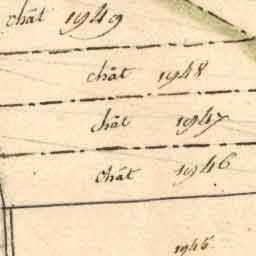 chât 1949
chât 1948
chât 1947
chât 1946
1945